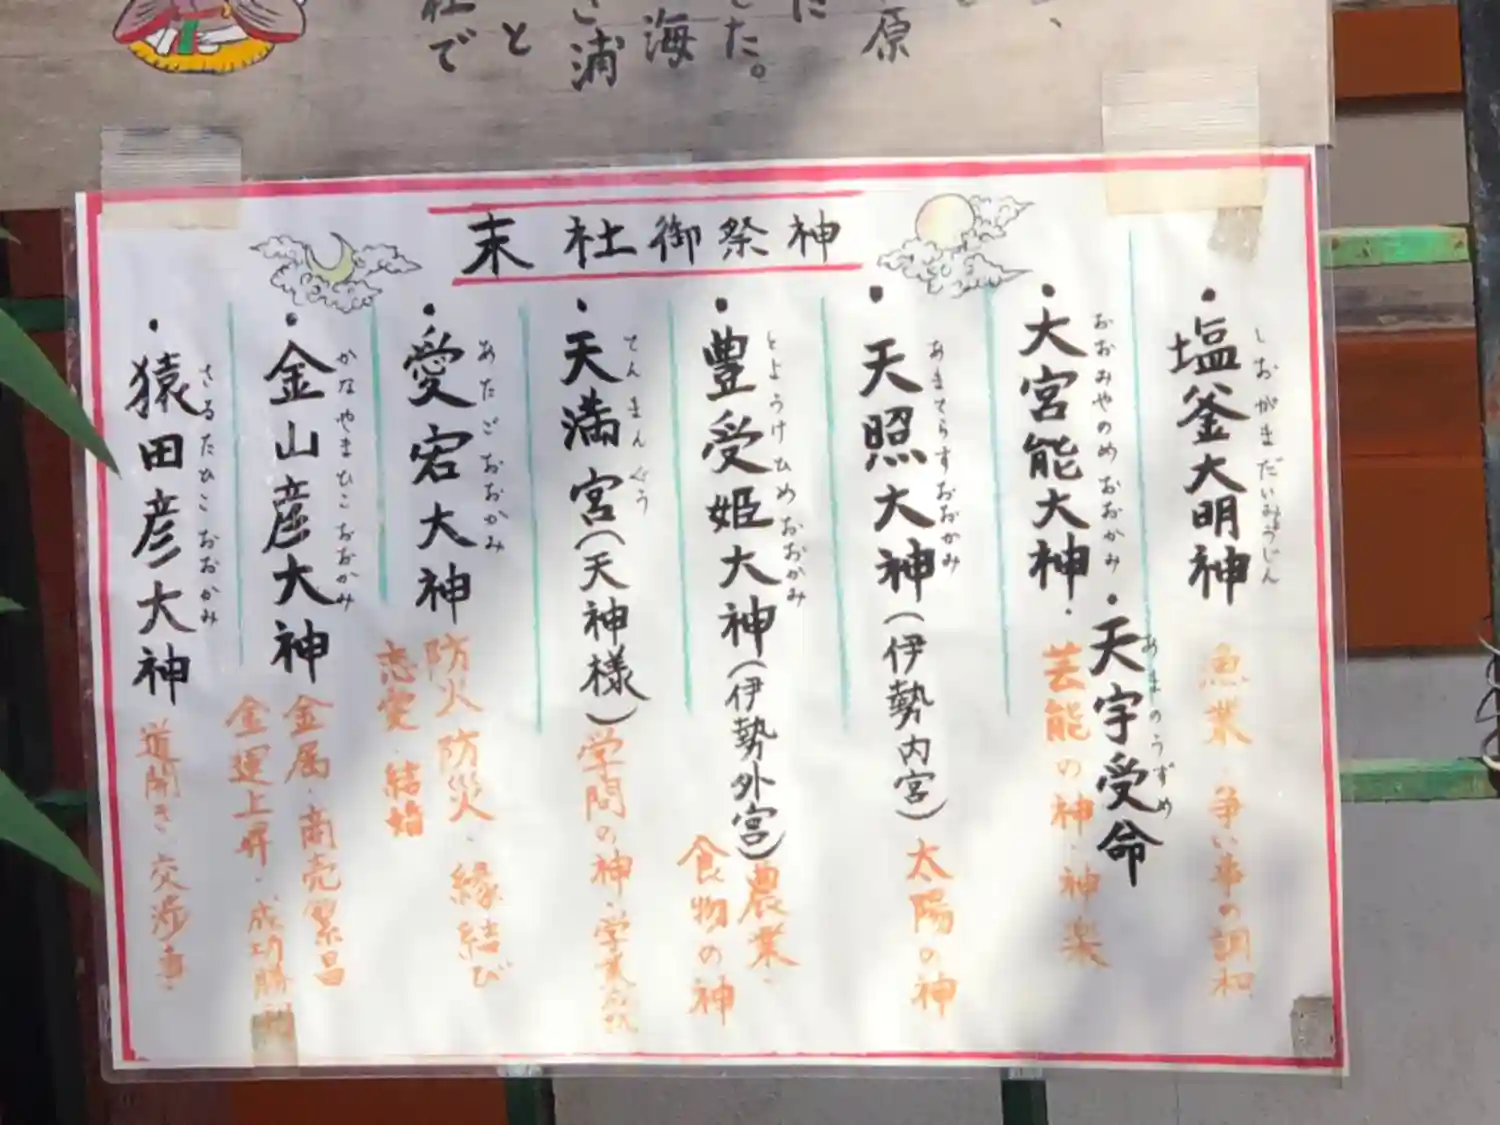 原
た。
海
浦
と
で
末社御祭神
・塩釜大明神
しおがまだいみょうじん
魚業・争い事の調和
・大宮能大神
おおみやのめおおかみ
・天宇受命
あまのうずめ
芸能の神・神楽
・天照大神(伊勢内宮)
あまてらすおおかみ
太陽の神
・豊受姫大神(伊勢外宮)
とようけひめおおかみ
農業・
食物の神
・天満宮(天神様)
てんまんぐう
学問の神・学業成就
・愛宕大神
あたごおおかみ
防火防災・縁結び
恋愛・結婚
・金山彦大神
かなやまひこおおかみ
金属・商売繁昌
金運上昇・成功勝利
・猿田彦大神
さるたひこおおかみ
道開き・交渉事